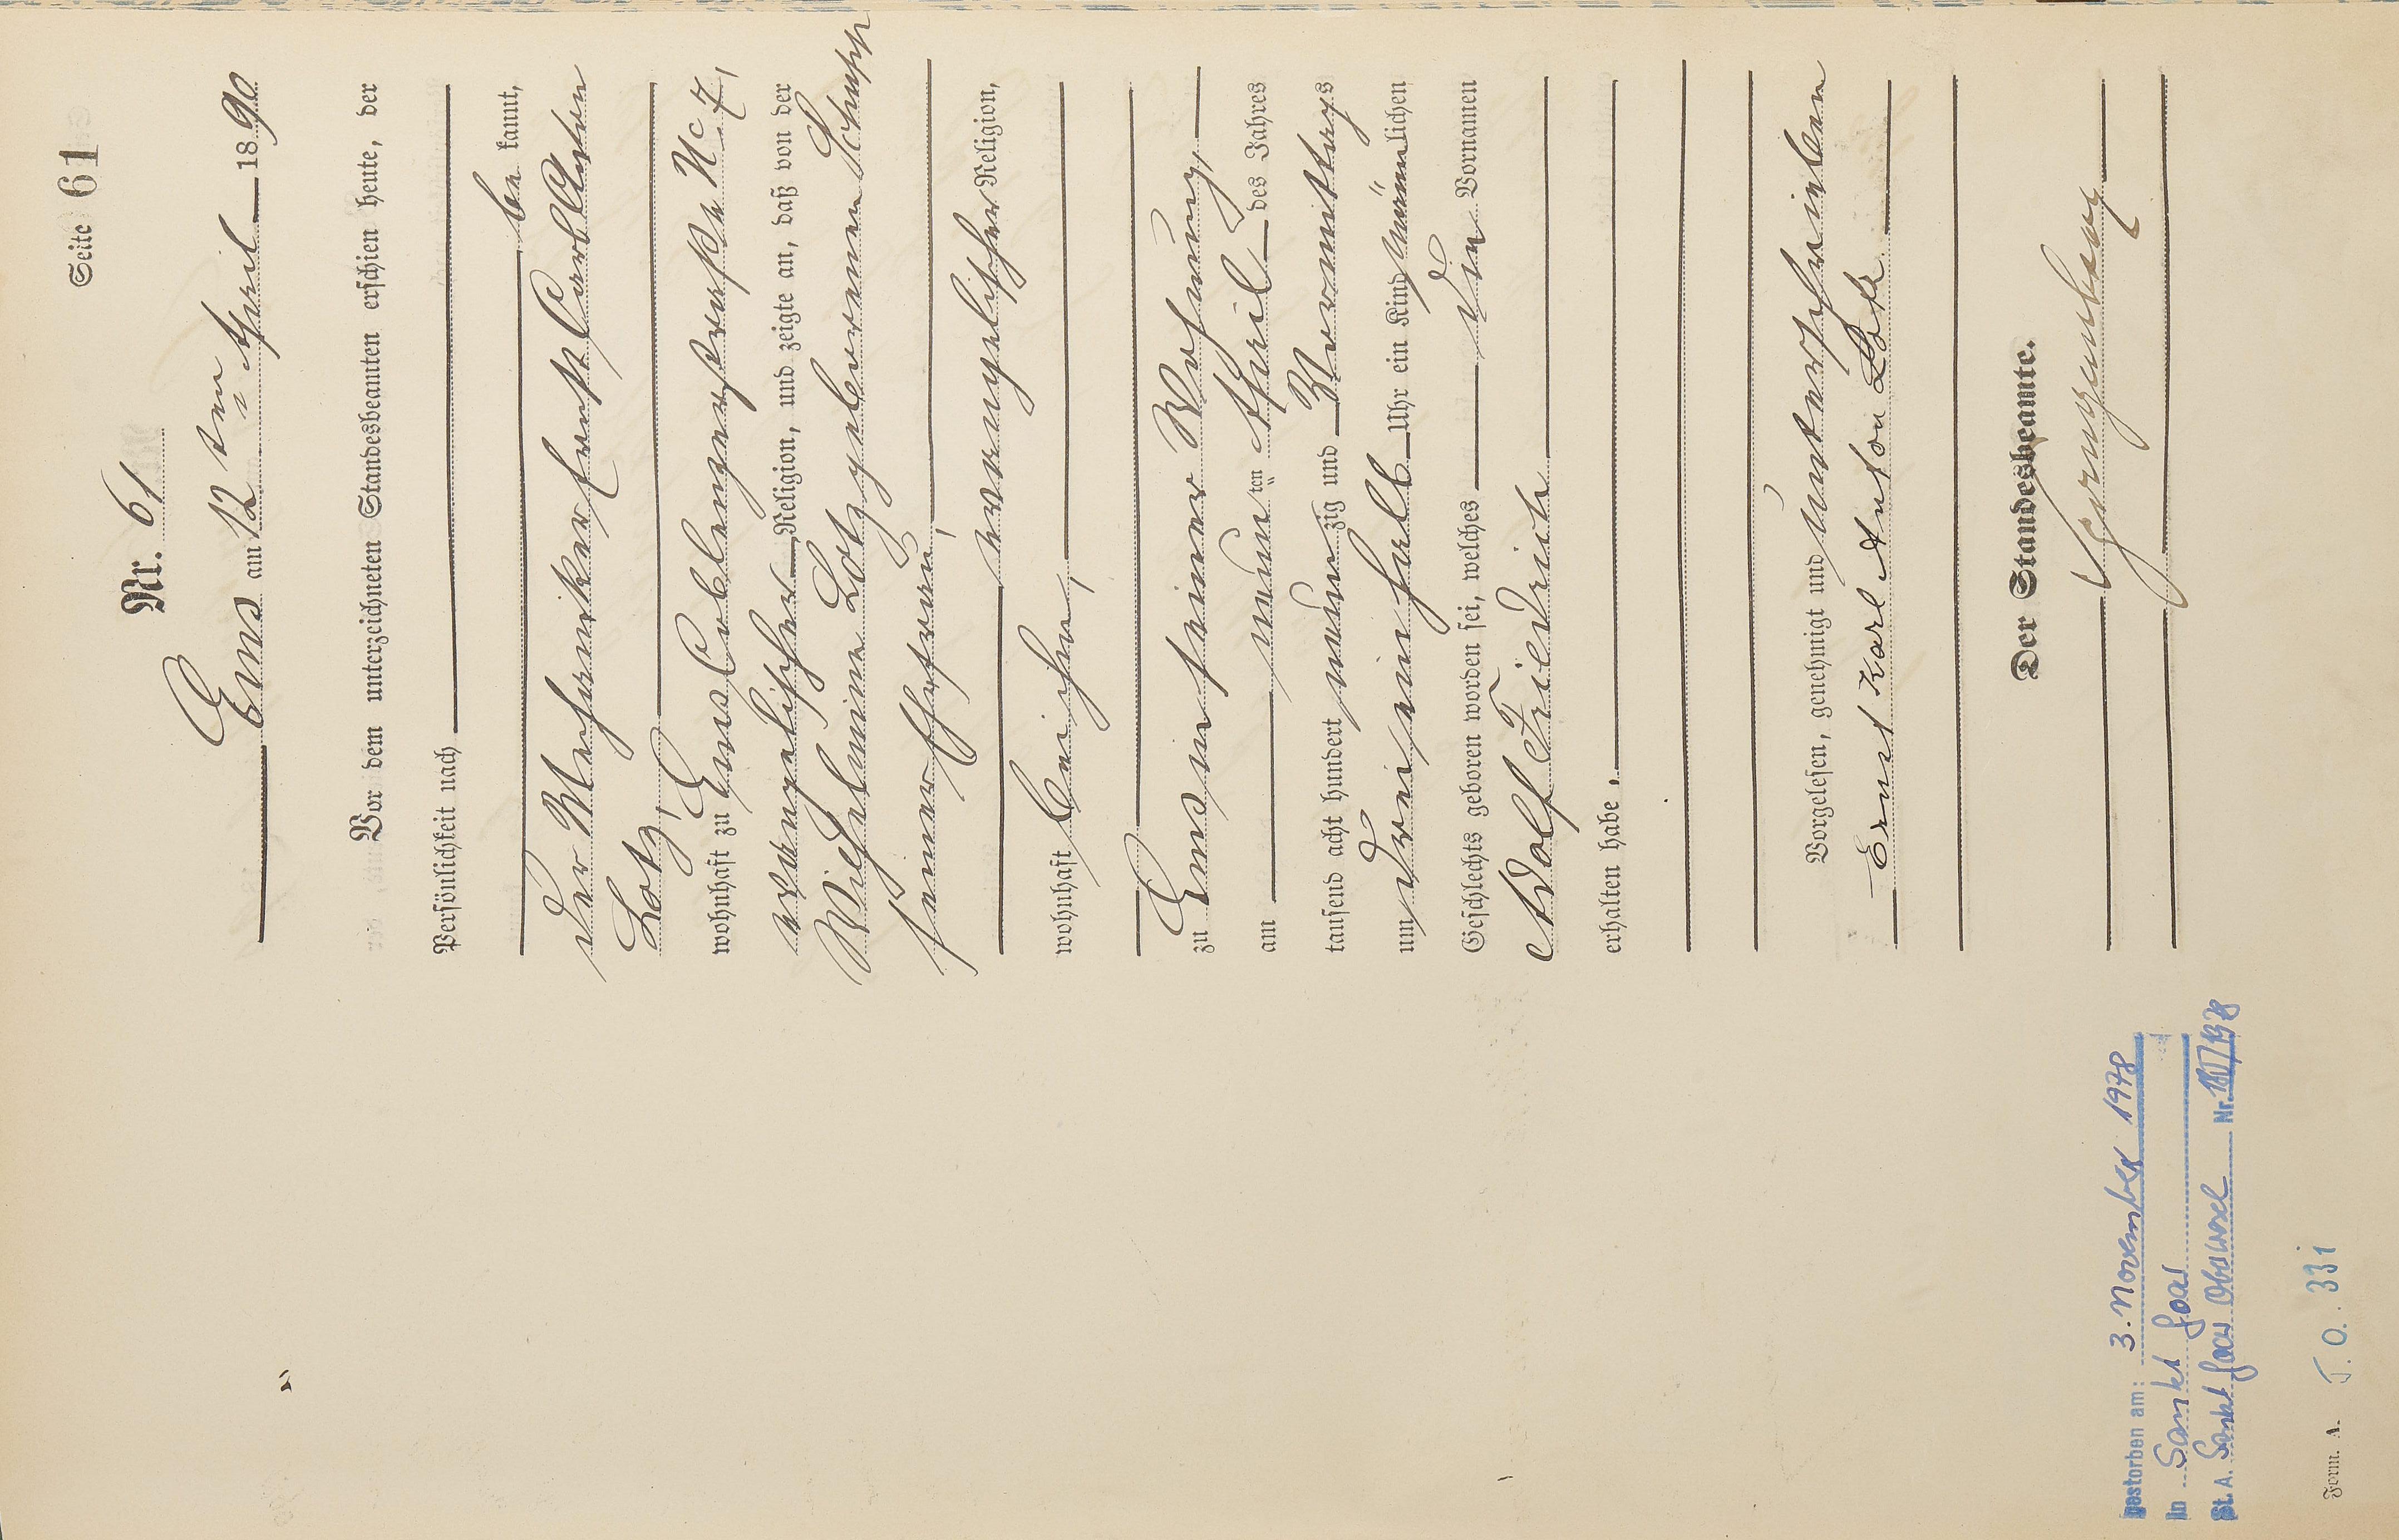 Seite 61
Nr. 61
Ems am 12 ten April 1890
Vor dem unterzeichneten Standesbeamten erschien heute, der
Persönlichkeit nach
be kannt,
der Mechaniker Ernst Carl Anton
Lotz,
wohnhaft zu Ems Coblenzerstraße No 7,
evangelischer Religion, und zeigte an, daß von der
Wilhelmine Lotz geborenen Schupp
seiner Ehefrau,
evangelischer Religion,
wohnhaft bei ihm,
zu Ems in seiner Wohnung,
am neun ten April des Jahres
tausend acht hundert neun zig und Vormittags
um drei ein halb Uhr ein Kind männlichen
Geschlechts geboren worden sei, welches den Vornamen
Adolf Friedrich
erhalten habe,
Vorgelesen, genehmigt und unterschrieben
Ernst Karl Anton Lotz
Der Standesbeamte.
gestorben am: 3. November 1978
in Sankt Goar
St. A. Sankt Goar Oberwesel Nr. /1978
Form. A. T. O. 331